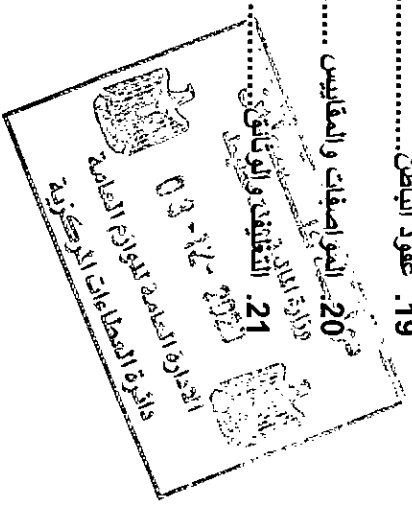 19. عقود الباطن..................
20. المواصفات والمقاييس .....
21. التغليف والوثائق.............
وزارة المالية
03-12-202
الإدارة العامة للوازم العامة
دائرة العطاءات المركزية